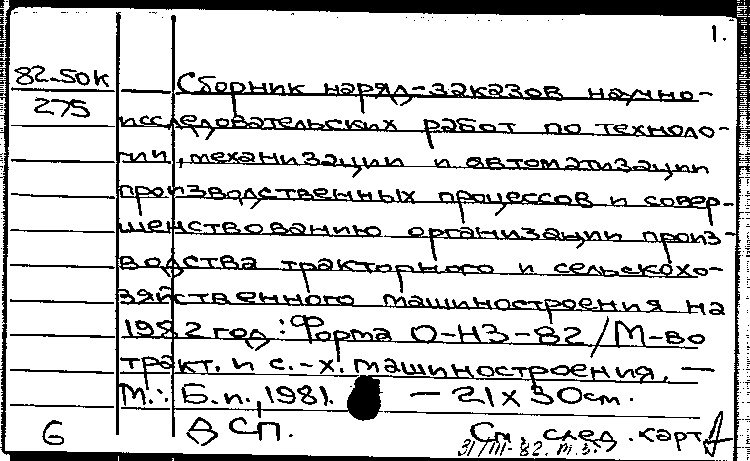 1.
82-50к
275
Сборник наряд-заказов научно-
исследовательских работ по техноло-
гии, механизации и автоматизации
производственных процессов и совер-
шенствованию организации произ-
водства тракторного и сельскохо-
зяйственного машиностроения на
1982 год: Форма О-НЗ-82/М-во
тракт. и с.-х. машиностроения. —
М.: Б.и., 1981. — 21х30см.
6 СП. См. след. карт
31/III-82. т.з.